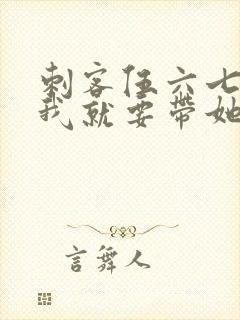 刺客伍六七
我就要带她
言舞人